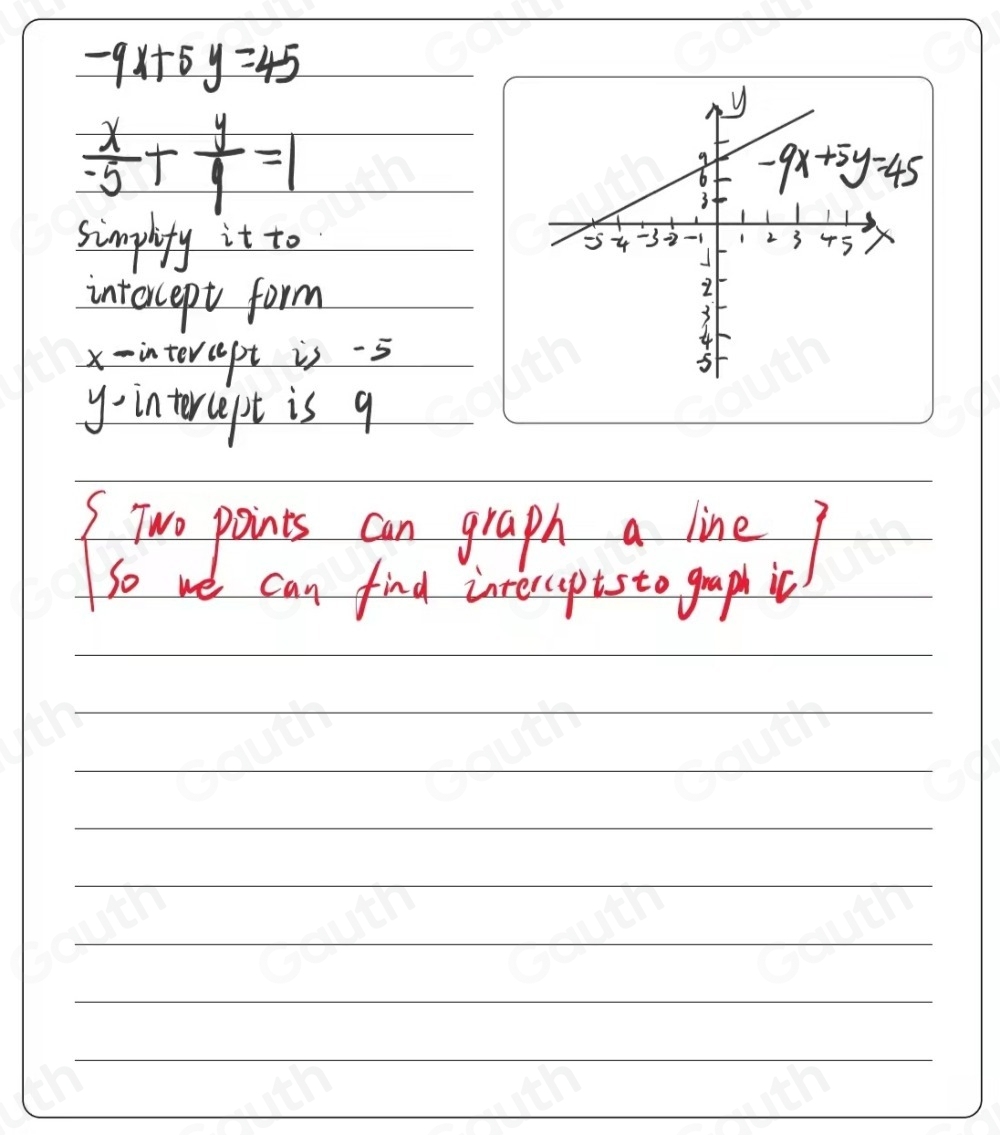 -9x+5y=45
x/-5 + y/9 = 1
simplify it to
intercept form
x-intercept is -5
y-intercept is 9
y
9
6
3
-9x+5y=45
-5 -4 -3 -2 -1 1 2 3 4 5 x
-1
2
3
-4
-5
{ Two points can graph a line }
so we can find intercepts to graph it
Gauth